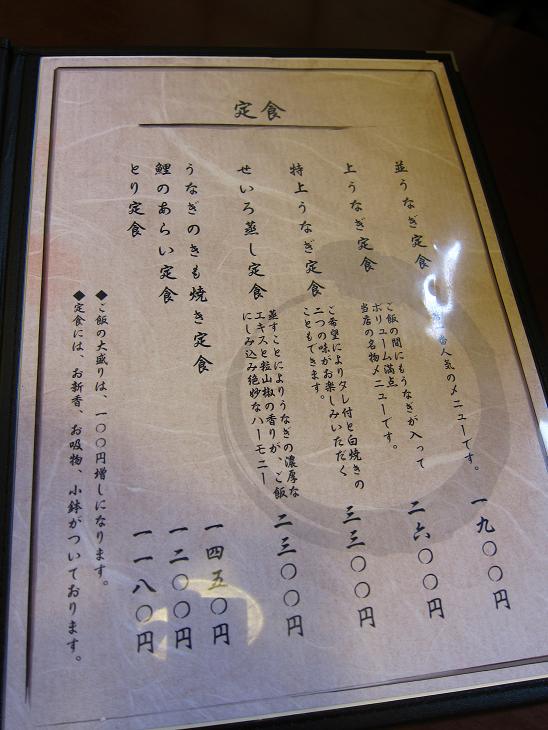 定食
並うなぎ定食
一番人気のメニューです。
一九〇〇円
上うなぎ定食
ご飯の間にもうなぎが入って
ボリューム満点
当店の名物メニューです。
二六〇〇円
特上うなぎ定食
ご希望によりタレ付と白焼きの
二つの味がお楽しみいただく
こともできます。
三三〇〇円
せいろ蒸し定食
蒸すことによりうなぎの濃厚な
エキスと粒山椒の香りが、ご飯
にしみ込み絶妙なハーモニー
二三〇〇円
うなぎのきも焼き定食
一四五〇円
鯉のあらい定食
一二〇〇円
とり定食
一一八〇円
◆ご飯の大盛りは、一〇〇円増しになります。
◆定食には、お新香、お吸物、小鉢がついております。